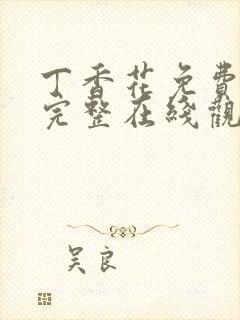 丁香花免費
完整在綫觀
吴良